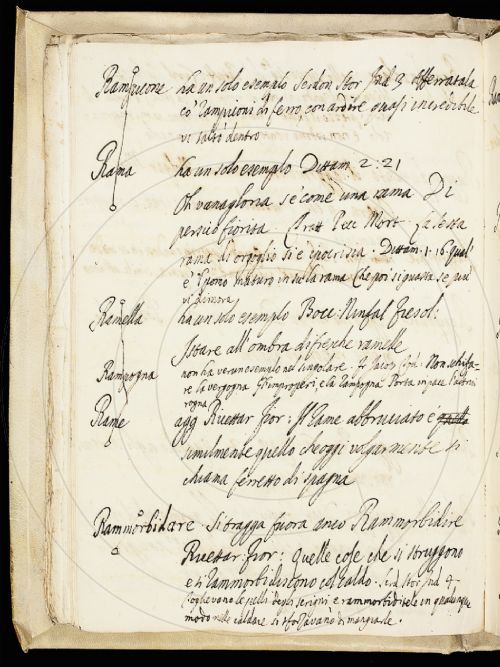 Rampicone ha un solo esemplo Serdon. Stor. Ind. 3 Afferratala
co' rampiconi di ferro, con ardire quasi incredibile
vi saltò dentro
Rama ha un solo esemplo Dittam. 2. 21
Oh vanagloria se' come una rama Di
persico fiorita Tratt Pecc Mort. La sesta
rama di orgoglio si è ipocrisia. Dittam. 1. 16. qual
è 'l pomo maturo in sulla rama Che poi si guasta se più
vi dimora
Ramella ha un solo esemplo Bocc. Ninfal Fiesol:
Istare all'ombra di fresche ramelle
Rampogna non ha verun esemplo nel singolare. Fr. Jacop. Non schifa-
re la vergogna Gl'improperj, e la rampogna Porta in pace
rogna
Rame agg Ricettar Fior: Il rame abbruciato è
similmente quello che oggi volgarmente si
chiama ferretto di spagna
Rammorbidare Si tragga fuora anco Rammorbidire
Ricettar Fior: Quelle cose che si struggono
e si rammorbidiscono col caldo. Serd. Stor. Ind. 4.
Toglievano le pelli degli scrigni e rammorbiditele in qualunque
modo nelle caldaie si sforzavano di mangiarle.